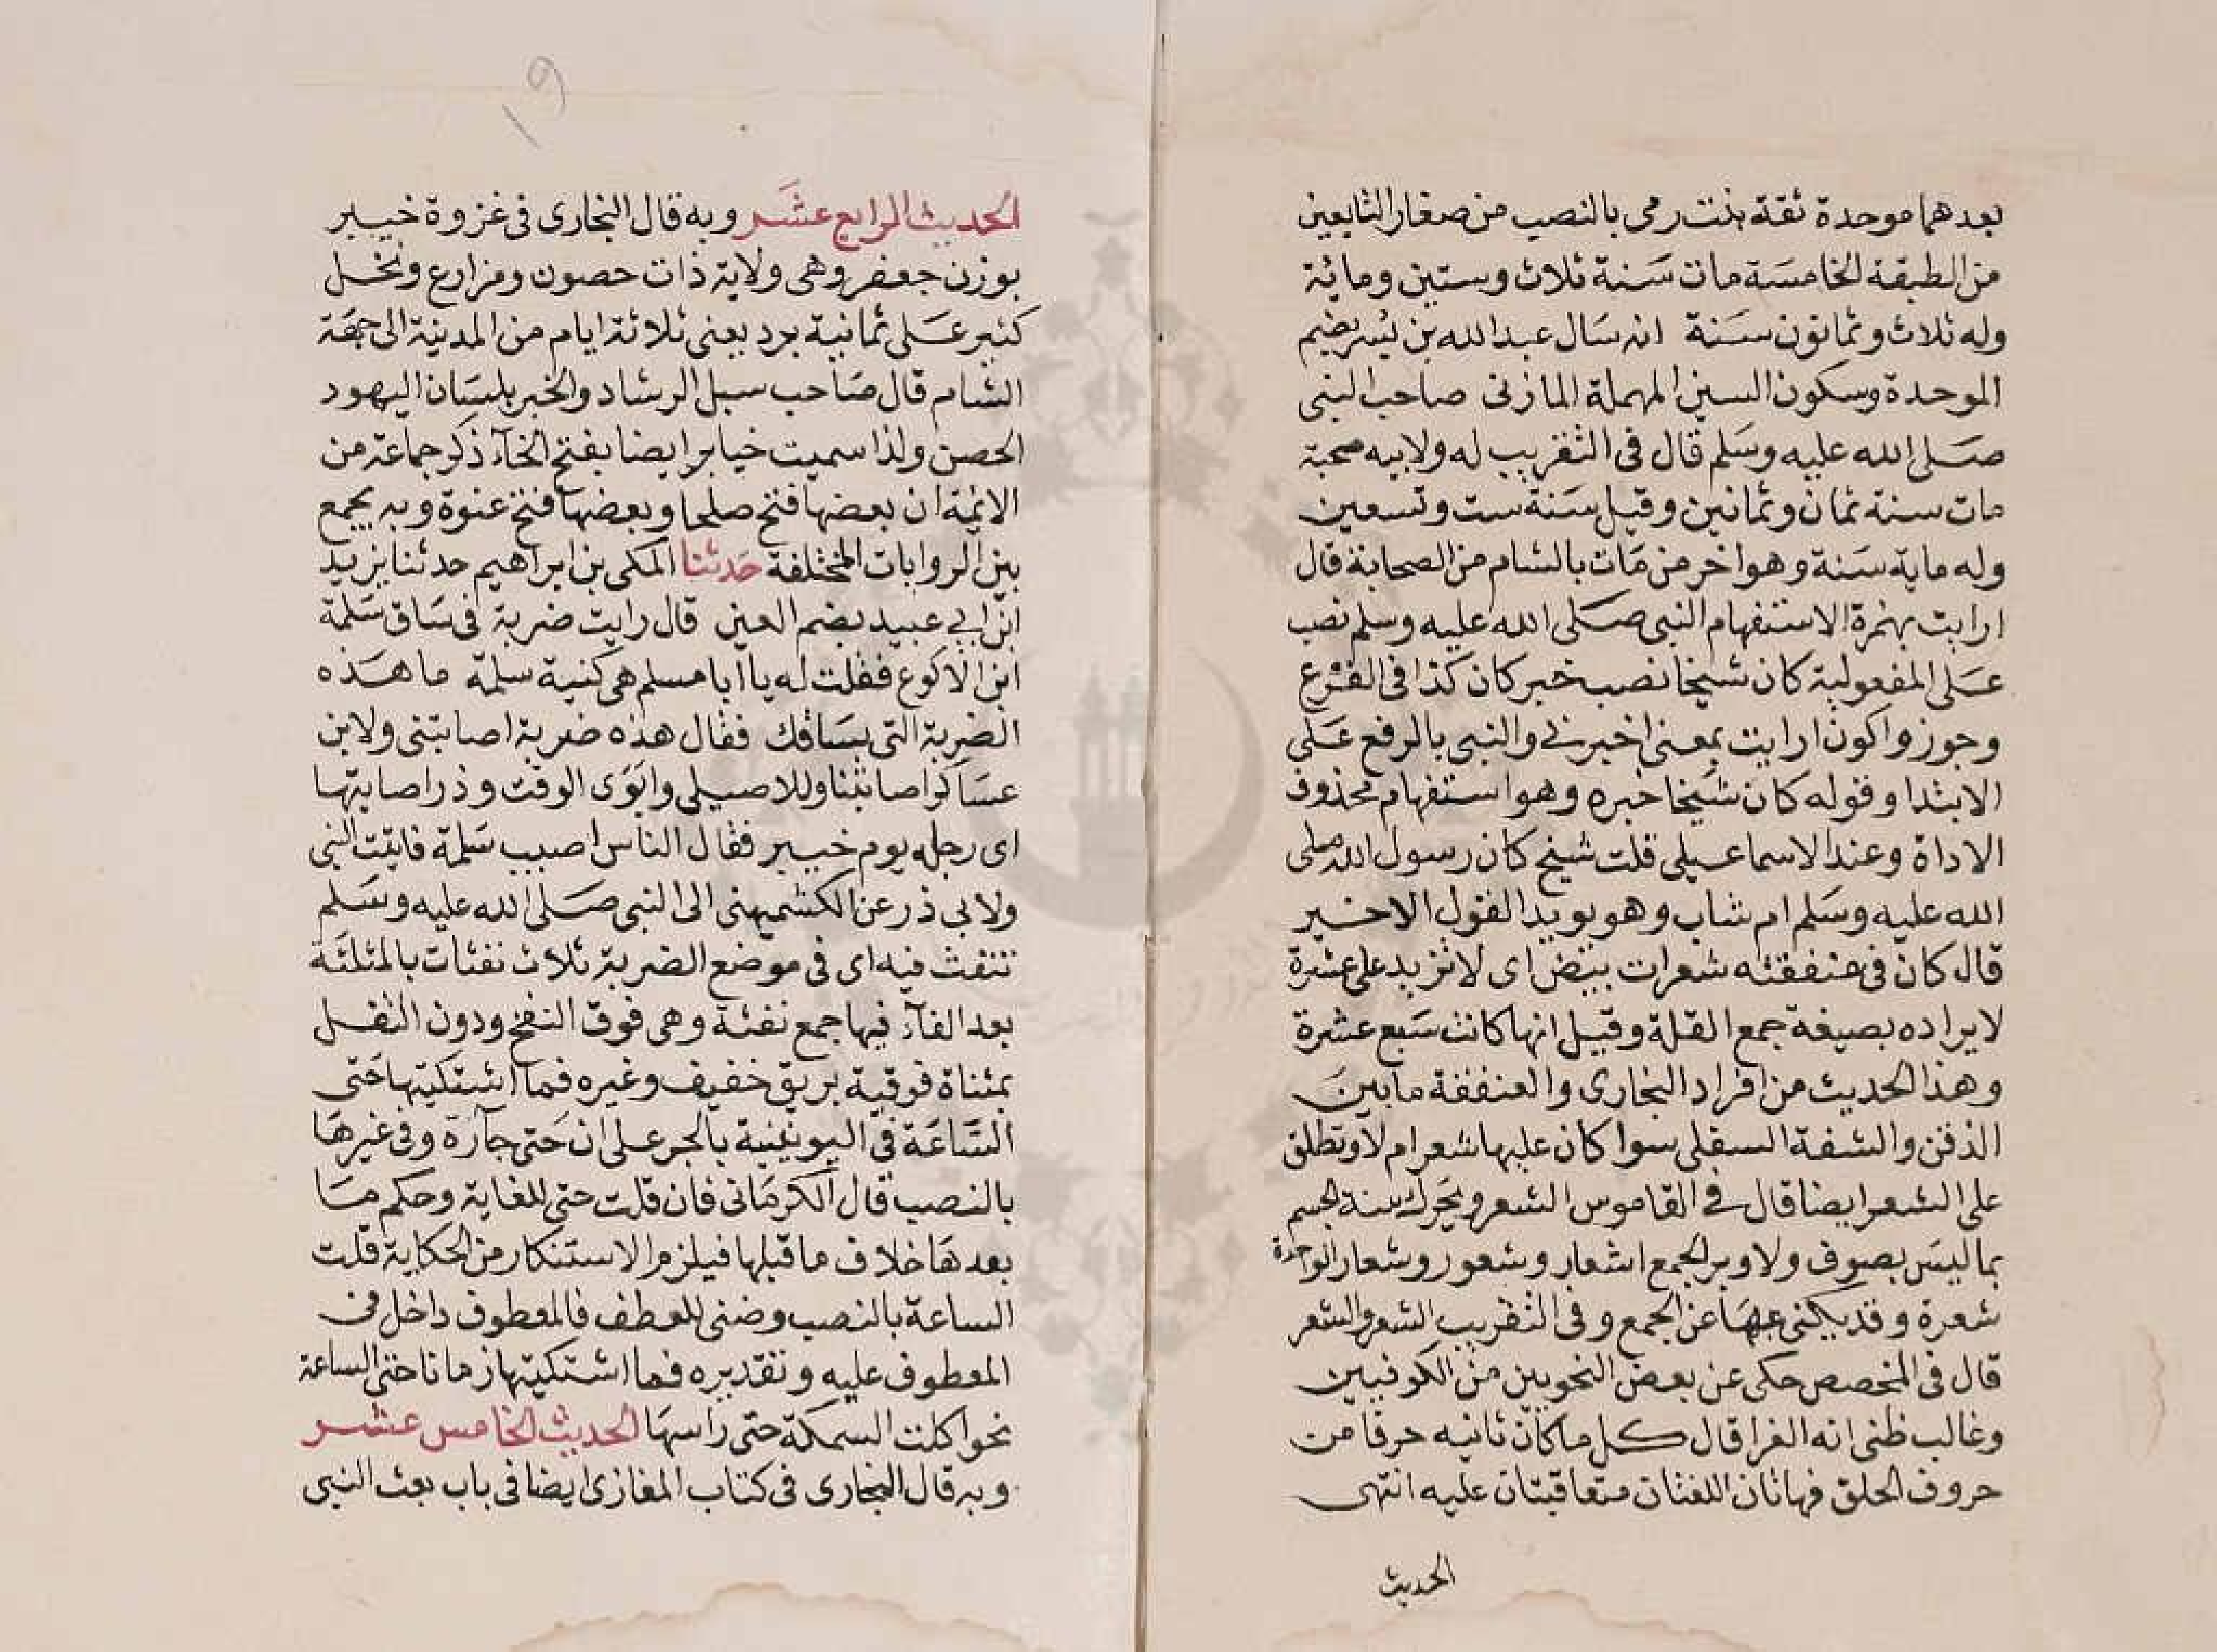 بعدهما موحدة ثقة بنت رمى بالنصب من صغار التابعين
من الطبقة الخامسة مات سنة ثلاث وستين ومائة
وله ثلاث وثمانون سنة انه سال عبدالله بن بسر بضم
الموحدة وسكون السين المهملة المازنى صاحب النبى
صلى الله عليه وسلم قال فى التقريب له ولابيه صحبة
مات سنة ثمان وثمانين وقيل سنة ست وتسعين
وله ماية سنة وهو اخر من مات بالشام من الصحابة قال
ارايت بهمزة الاستفهام النبى صلى الله عليه وسلم نصب
على المفعولية كان شيخا نصب خبر كان كذا فى الفرع
وجوزوا كون ارايت بمعنى اخبرنى والنبى بالرفع على
الابتدا وقوله كان شيخا خبره وهو استفهام محذوف
الاداة وعند الاسماعيلى قلت شيخ كان رسول الله صلى
الله عليه وسلم ام شاب وهو يويد القول الاخير
قال كان فى عنفقته شعرات بيض اى لا تزيد على عشرة
لايراده بصيغة جمع القلة وقيل انها كانت سبع عشرة
وهذا الحديث من افراد البخارى والعنفقة مابين
الذقن والشفة السفلى سوا كان عليها شعر ام لا وتطلق
على الشعر ايضا قال فى القاموس الشعر ويحرك نبتة الجسم
بما ليس بصوف ولا وبر الجمع اشعار وشعور وشعار الواحدة
شعرة وقد يكنى بها عن الجمع وفى التقريب الشعر والشعر
قال فى المخصص حكى عن بعض النحويين من الكوفيين
وغالب ظنى انه الفرا قال كل ما كان ثانيه حرفا من
حروف الحلق فهاتان اللغتان متعاقبتان عليه انتهى
الحديث
١٩
الحديث الرابع عشر وبه قال البخارى فى غزوة خيبر
بوزن جعفر وهى ولاية ذات حصون ومزارع ونخل
كثير على ثمانية برد يعنى ثلاثة ايام من المدينة الى جهة
الشام قال صاحب سبل الرشاد والخبر بلسان اليهود
الحصن ولذا سميت خيابر ايضا بفتح الخآء ذكر جماعة من
الائمة ان بعضها فتح صلحا وبعضها فتح عنوة وبه يجمع
بين الروايات المختلفة حدثنا المكى بن ابراهيم حدثنا يزيد
ابن ابي عبيد بضم العين قال رايت ضربة فى ساق سلمة
ابن الاكوع فقلت له يا ابا مسلم هى كنية سلمة ما هذه
الضربة التى بساقك فقال هذه ضربة اصابتنى ولابن
عساكر اصابتنا وللاصيلى وابوى الوقت وذر اصابتها
اى رجله يوم خيبر فقال الناس اصيب سلمة فاتيت النبى
ولابى ذر عن الكشميهنى الى النبى صلى الله عليه وسلم
تنفث فيه اى فى موضع الضربة ثلاث نفثات بالمثلثة
بعد الفآء فيها جمع نفثة وهى فوق النفخ ودون التفل
بمثناة فوقية بريق خفيف وغيره فما اشتكيتها حتى
الساعة فى اليونينية بالجر على ان حتى جآرة وفى غيرها
بالنصب قال الكرمانى فان قلت حتى للغاية وحكم ما
بعدها خلاف ما قبلها فيلزم الاستنكار من الحكاية قلت
الساعة بالنصب وضنى للعطف فالمعطوف داخل فى
المعطوف عليه وتقديره فما اشتكيتها زمانا حتى الساعة
نحو اكلت السمكة حتى راسها الحديث الخامس عشر
وبه قال البخارى فى كتاب المغازى ايضا فى باب بعث النبى